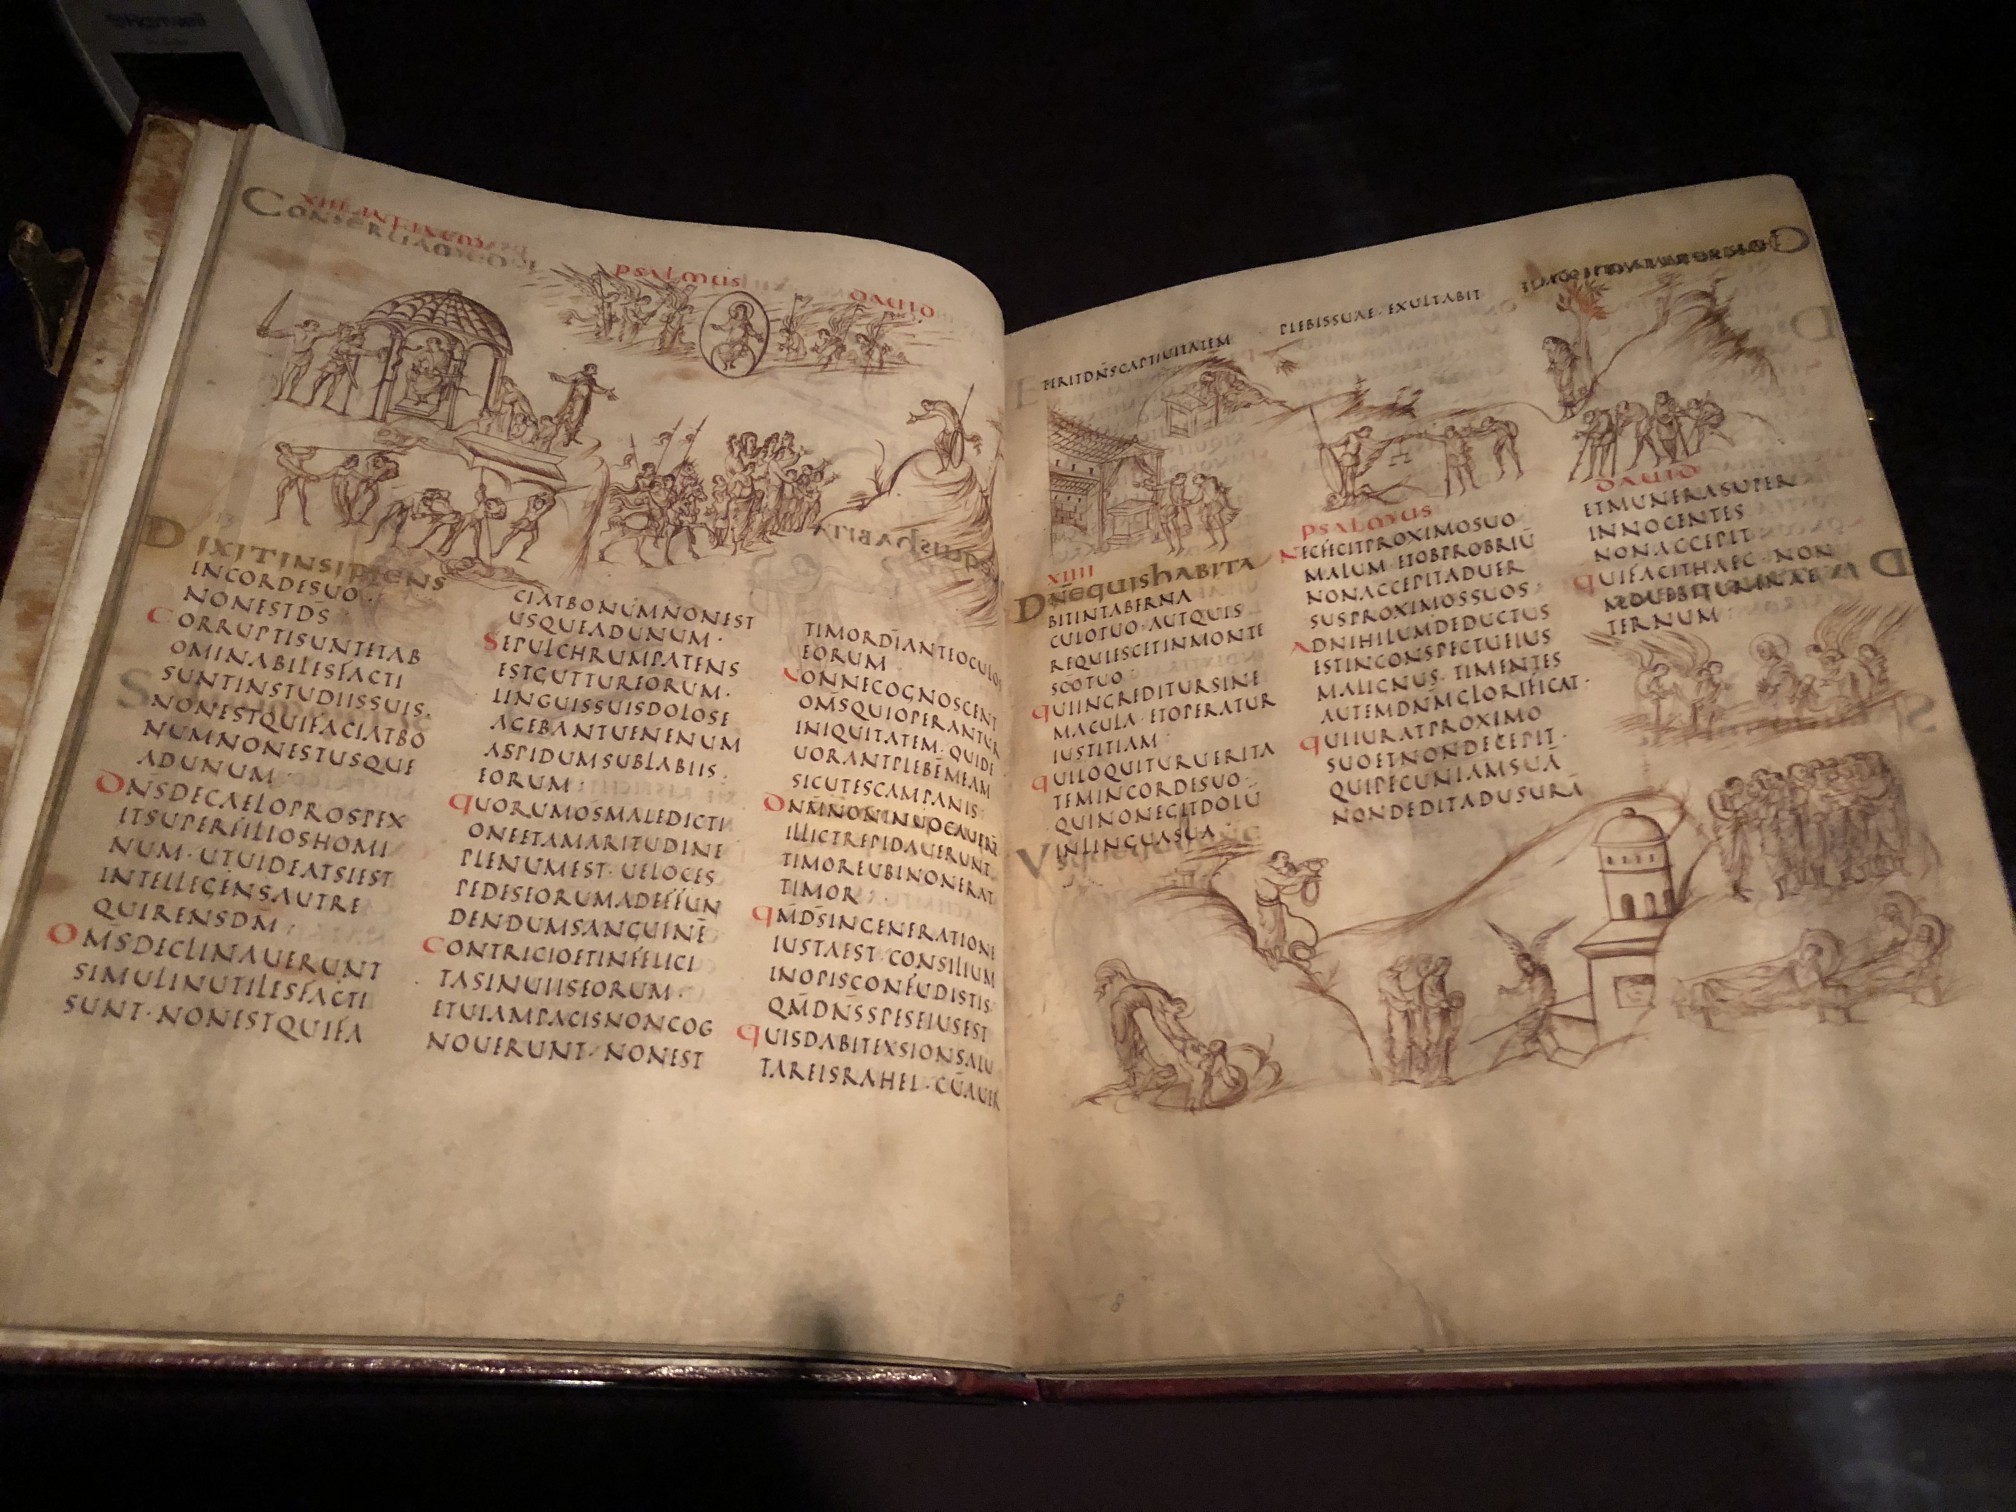 Hanwell
XIII INFINEM
PSALMUS
DAUID
DIXITINSIPIENS
INCORDESUO·
NONESTDS·
CORRUPTISUNTETAB
OMINABILESFACTI
SUNTINSTUDIISSUIS·
NONESTQUIFACIATBO
NUMNONESTUSQUE
ADUNUM·
DN̄SDECAELOPROSPEX
ITSUPERFILIOSHOMI
NUM·UTUIDEATSIEST
INTELLEGENSAUTRE
QUIRENSDM̄·
OM̄SDECLINAUERUNT
SIMULINUTILESFACTI
SUNT·NONESTQUIFA
CIATBONUMNONEST
USQUEADUNUM·
SEPULCHRUMPATENS
ESTGUTTUREORUM·
LINGUISSUISDOLOSE
AGEBANTUENENUM
ASPIDUMSUBLABIIS·
EORUM·
QUORUMOSMALEDICTI
ONEETAMARITUDINE
PLENUMEST·UELOCES
PEDESEORUMADEFFUN
DENDUMSANGUINĒ
CONTRICIOETINFELICI
TASINUIISEORUM·
ETUIAMPACISNONCOG
NOUERUNT·NONEST
TIMORDĪANTEOCULOS
EORUM
NONNECOGNOSCENT
OM̄SQUIOPERANTUR
INIQUITATEM·QUIDE
UORANTPLEBĒMEAM
SICUTESCAMPANIS·
DN̄MNONINUOCAUERT̄
ILLICTREPIDAUERUNT
TIMOREUBINONERAT
TIMOR·
QM̄DS̄INGENERATIONE
IUSTAEST·CONSILIUM
INOPISCONFUDISTIS·
QM̄DN̄SSPESEIUSEST
QUISDABITEXSIONSALU
TAREISRAHEL·CŪAUER
TERITDN̄SCAPTIUITATEM
PLEBISSUAE·EXULTABIT
XIIII
PSALMUS
DAUID
DN̄EQUISHABITA
BITINTABERNA
CULOTUO·AUTQUIS
REQUIESCETINMONTE
SCOTUO·
QUIINGREDITURSINE
MACULA·ETOPERATUR
IUSTITIAM·
QUILOQUITURUERITA
TEMINCORDESUO·
QUINONEGITDOLŪ
INLINGUASUA·
NECFECITPROXIMOSUO
MALUM·ETOBPROBRIŪ
NONACCEPITADUER
SUSPROXIMOSSUOS·
ADNIHILUMDEDUCTUS
ESTINCONSPECTUEIUS
MALIGNUS·TIMENTES
AUTEMDN̄MGLORIFICAT·
QUIIURATPROXIMO
SUOETNONDECEPIT·
QUIPECUNIAMSUĀ
NONDEDITADUSURĀ
ETMUNERASUPER
INNOCENTES
NONACCEPIT
QUIFACITHAEC·NON
TERNUM·